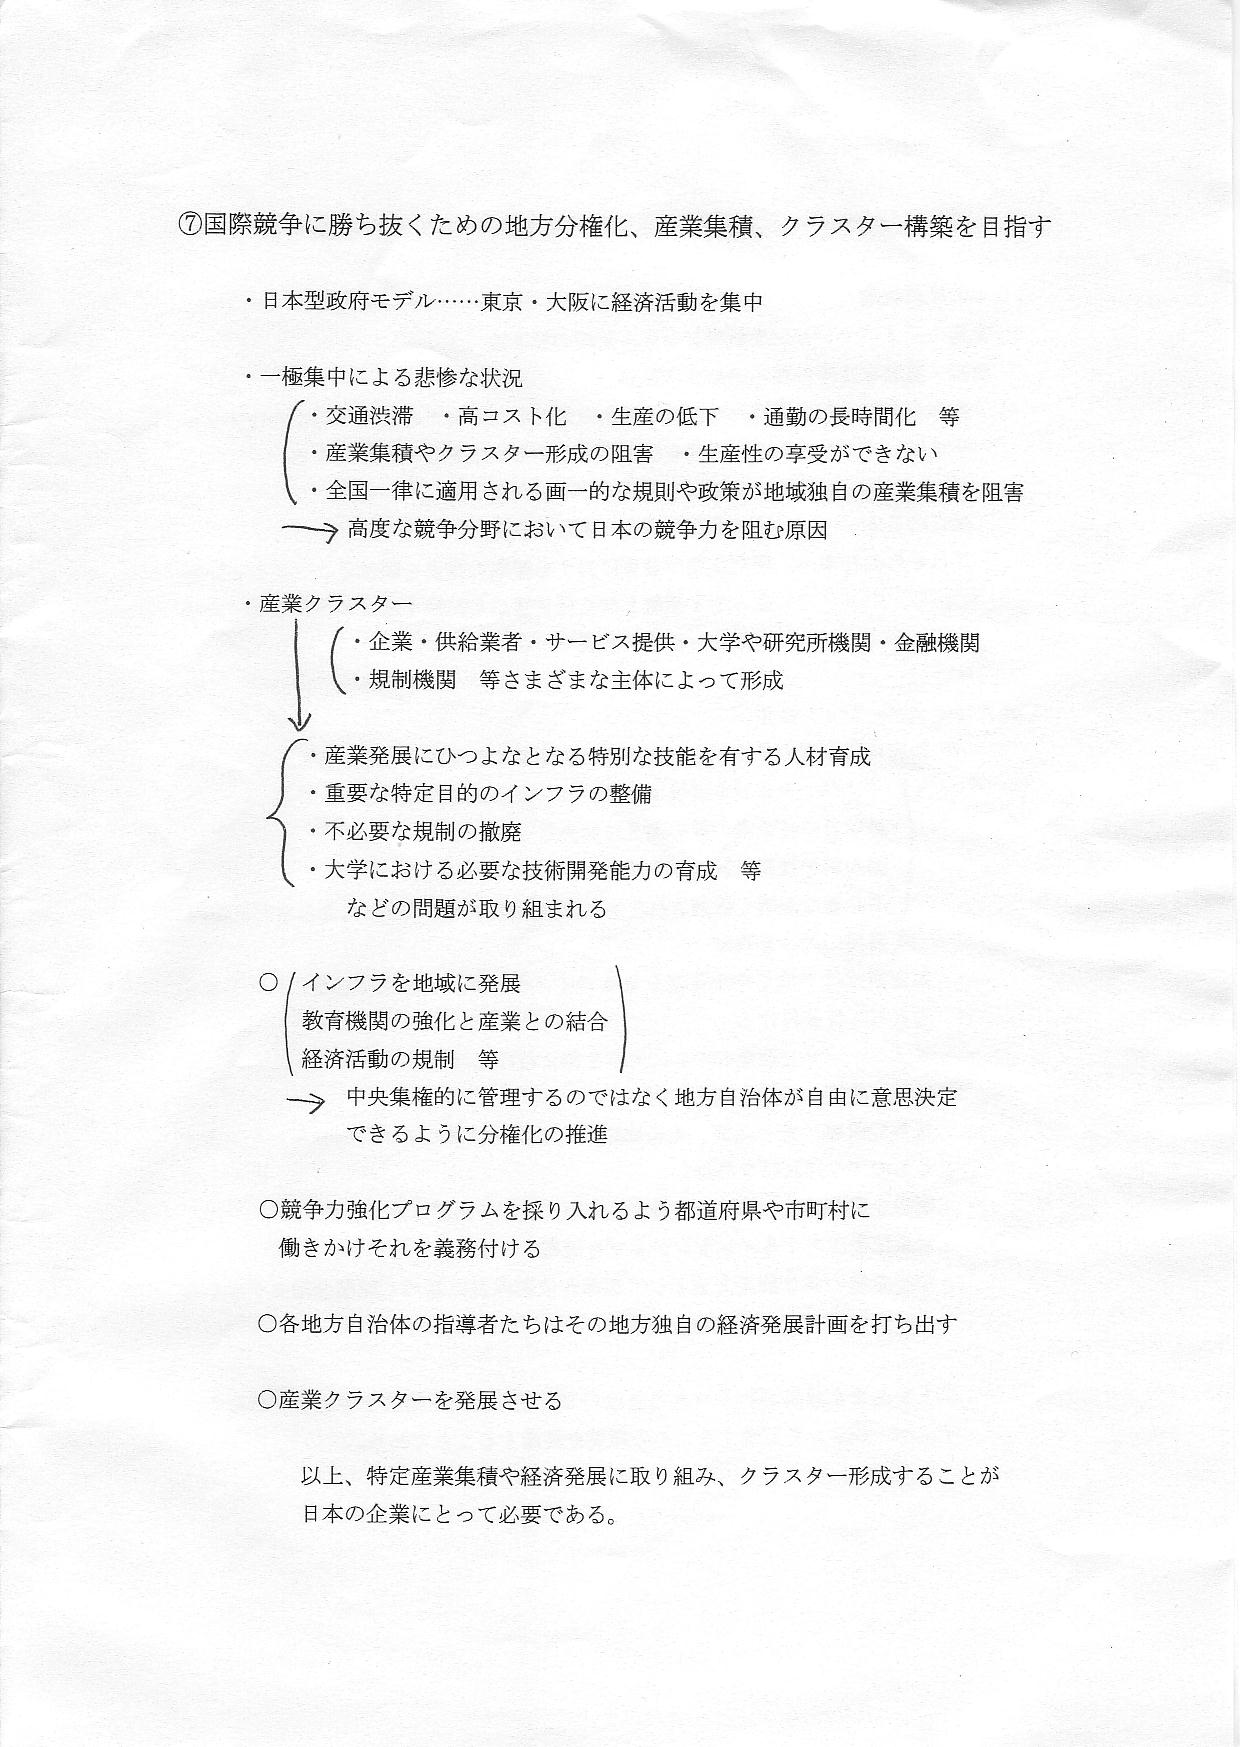 ⑦国際競争に勝ち抜くための地方分権化、産業集積、クラスター構築を目指す
・日本型政府モデル……東京・大阪に経済活動を集中
・一極集中による悲惨な状況
・交通渋滞　・高コスト化　・生産の低下　・通勤の長時間化　等
・産業集積やクラスター形成の阻害　・生産性の享受ができない
・全国一律に適用される画一的な規則や政策が地域独自の産業集積を阻害
→ 高度な競争分野において日本の競争力を阻む原因
・産業クラスター
・企業・供給業者・サービス提供・大学や研究所機関・金融機関
・規制機関　等さまざまな主体によって形成
・産業発展にひつよなとなる特別な技能を有する人材育成
・重要な特定目的のインフラの整備
・不必要な規制の撤廃
・大学における必要な技術開発能力の育成　等
などの問題が取り組まれる
○インフラを地域に発展
教育機関の強化と産業との結合
経済活動の規制　等
→ 中央集権的に管理するのではなく地方自治体が自由に意思決定
できるように分権化の推進
○競争力強化プログラムを採り入れるよう都道府県や市町村に
働きかけそれを義務付ける
○各地方自治体の指導者たちはその地方独自の経済発展計画を打ち出す
○産業クラスターを発展させる
以上、特定産業集積や経済発展に取り組み、クラスター形成することが
日本の企業にとって必要である。